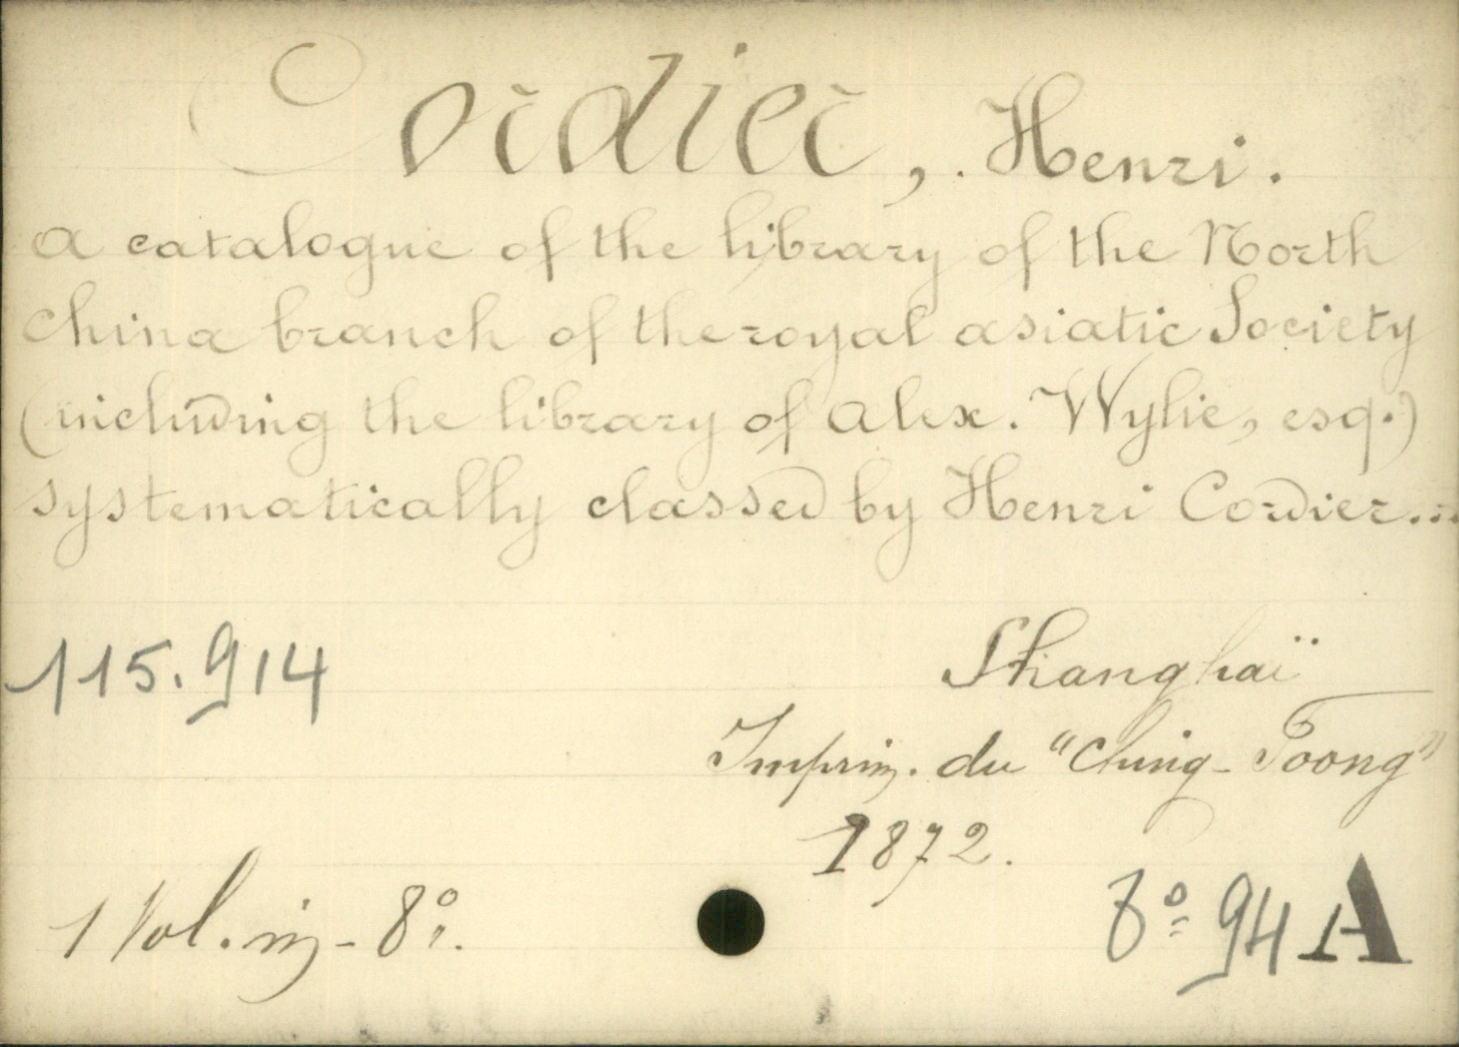 Cordier, Henri.
A catalogue of the library of the North
China branch of the royal asiatic Society
(including the library of Alex. Wylie, esq.)
systematically classed by Henri Cordier...
115.914
Shanghaï
Imprim. du "Ching-Foong"
1872.
1 Vol. in-8º.
8º 94 A